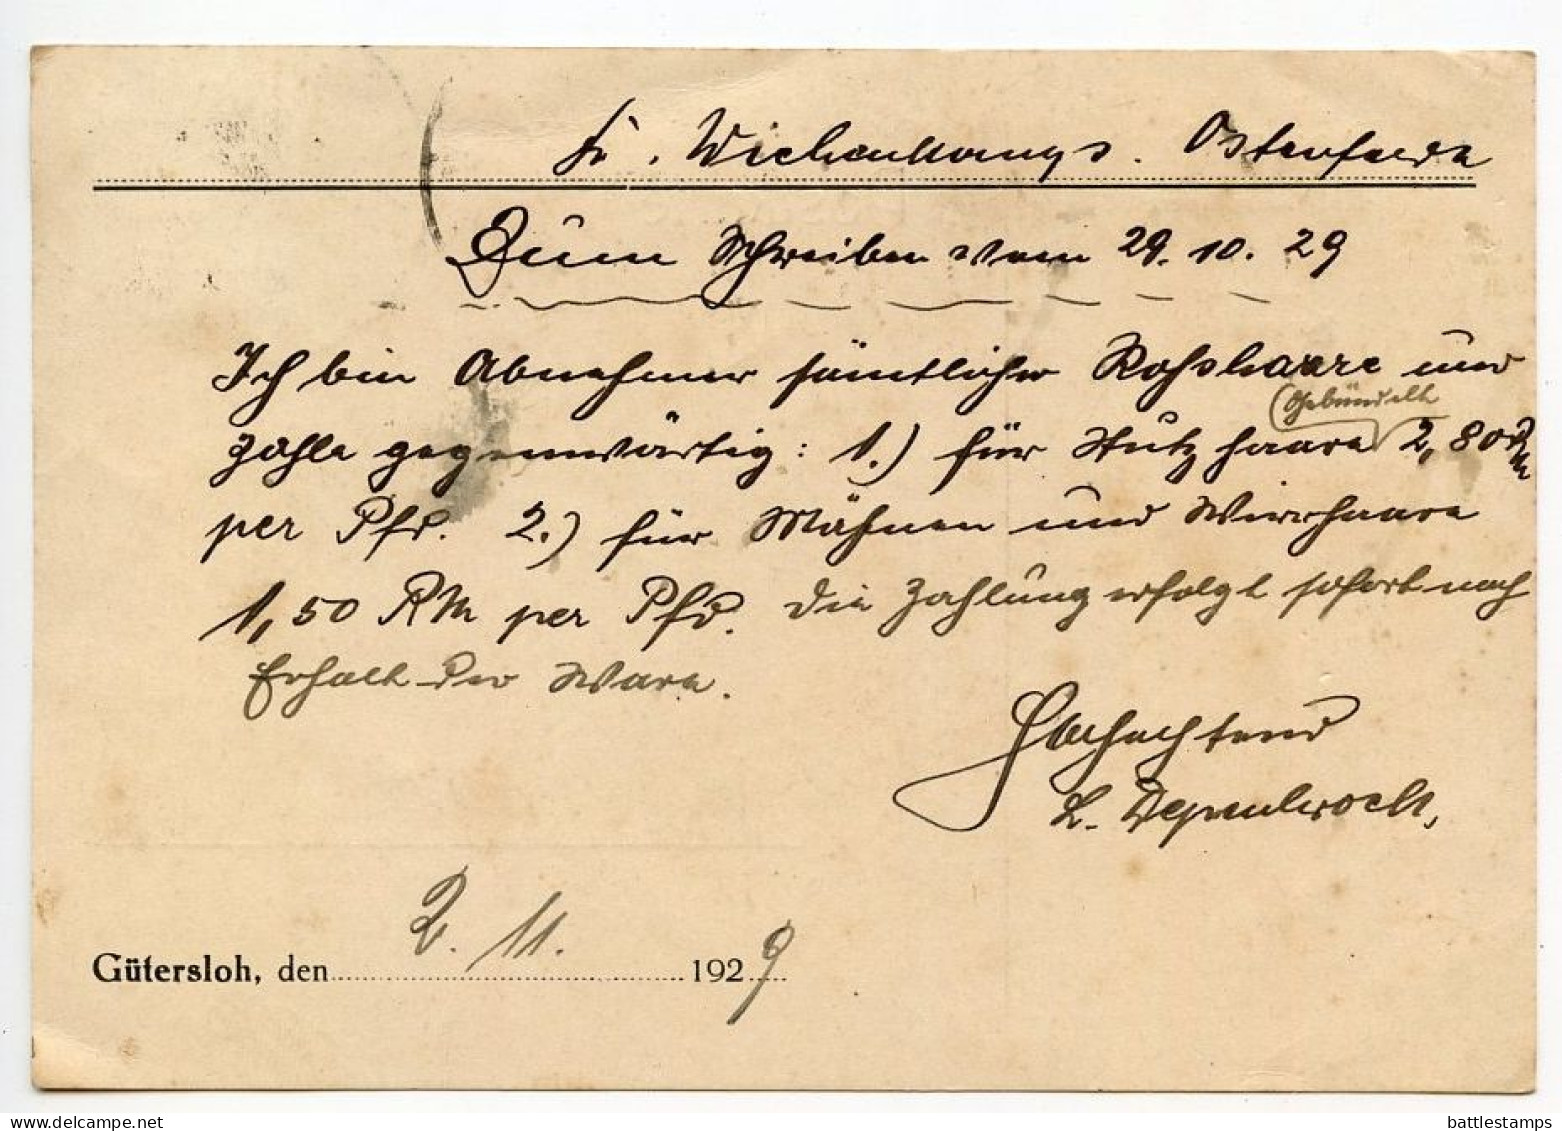 Fr. Ostenfelde
Zum Schreiben vom 29. 10. 29
Ich bin Abnehmer sämtlicher Rosshaare und
(Gebündelt
zahle gegenwärtig: 1.) für Stutzhaare 2,80 RM
per Pfd. 2.) für Mähnen und Wirrhaare
1,50 RM per Pfd. Die Zahlung erfolgt sofort nach
Erhalt der Ware.
Hochachtend
Gütersloh, den 2. 11. 1929
delcampe.net
battlestamps